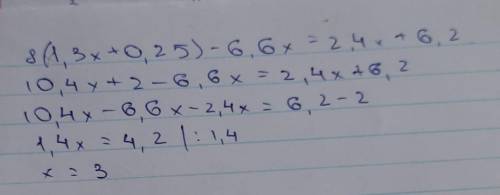 8(1,3x+0,25)-6,6x=2,4x+6,2
10,4x+2-6,6x=2,4x+6,2
10,4x-6,6x-2,4x=6,2-2
1,4x=4,2 |:1,4
x=3